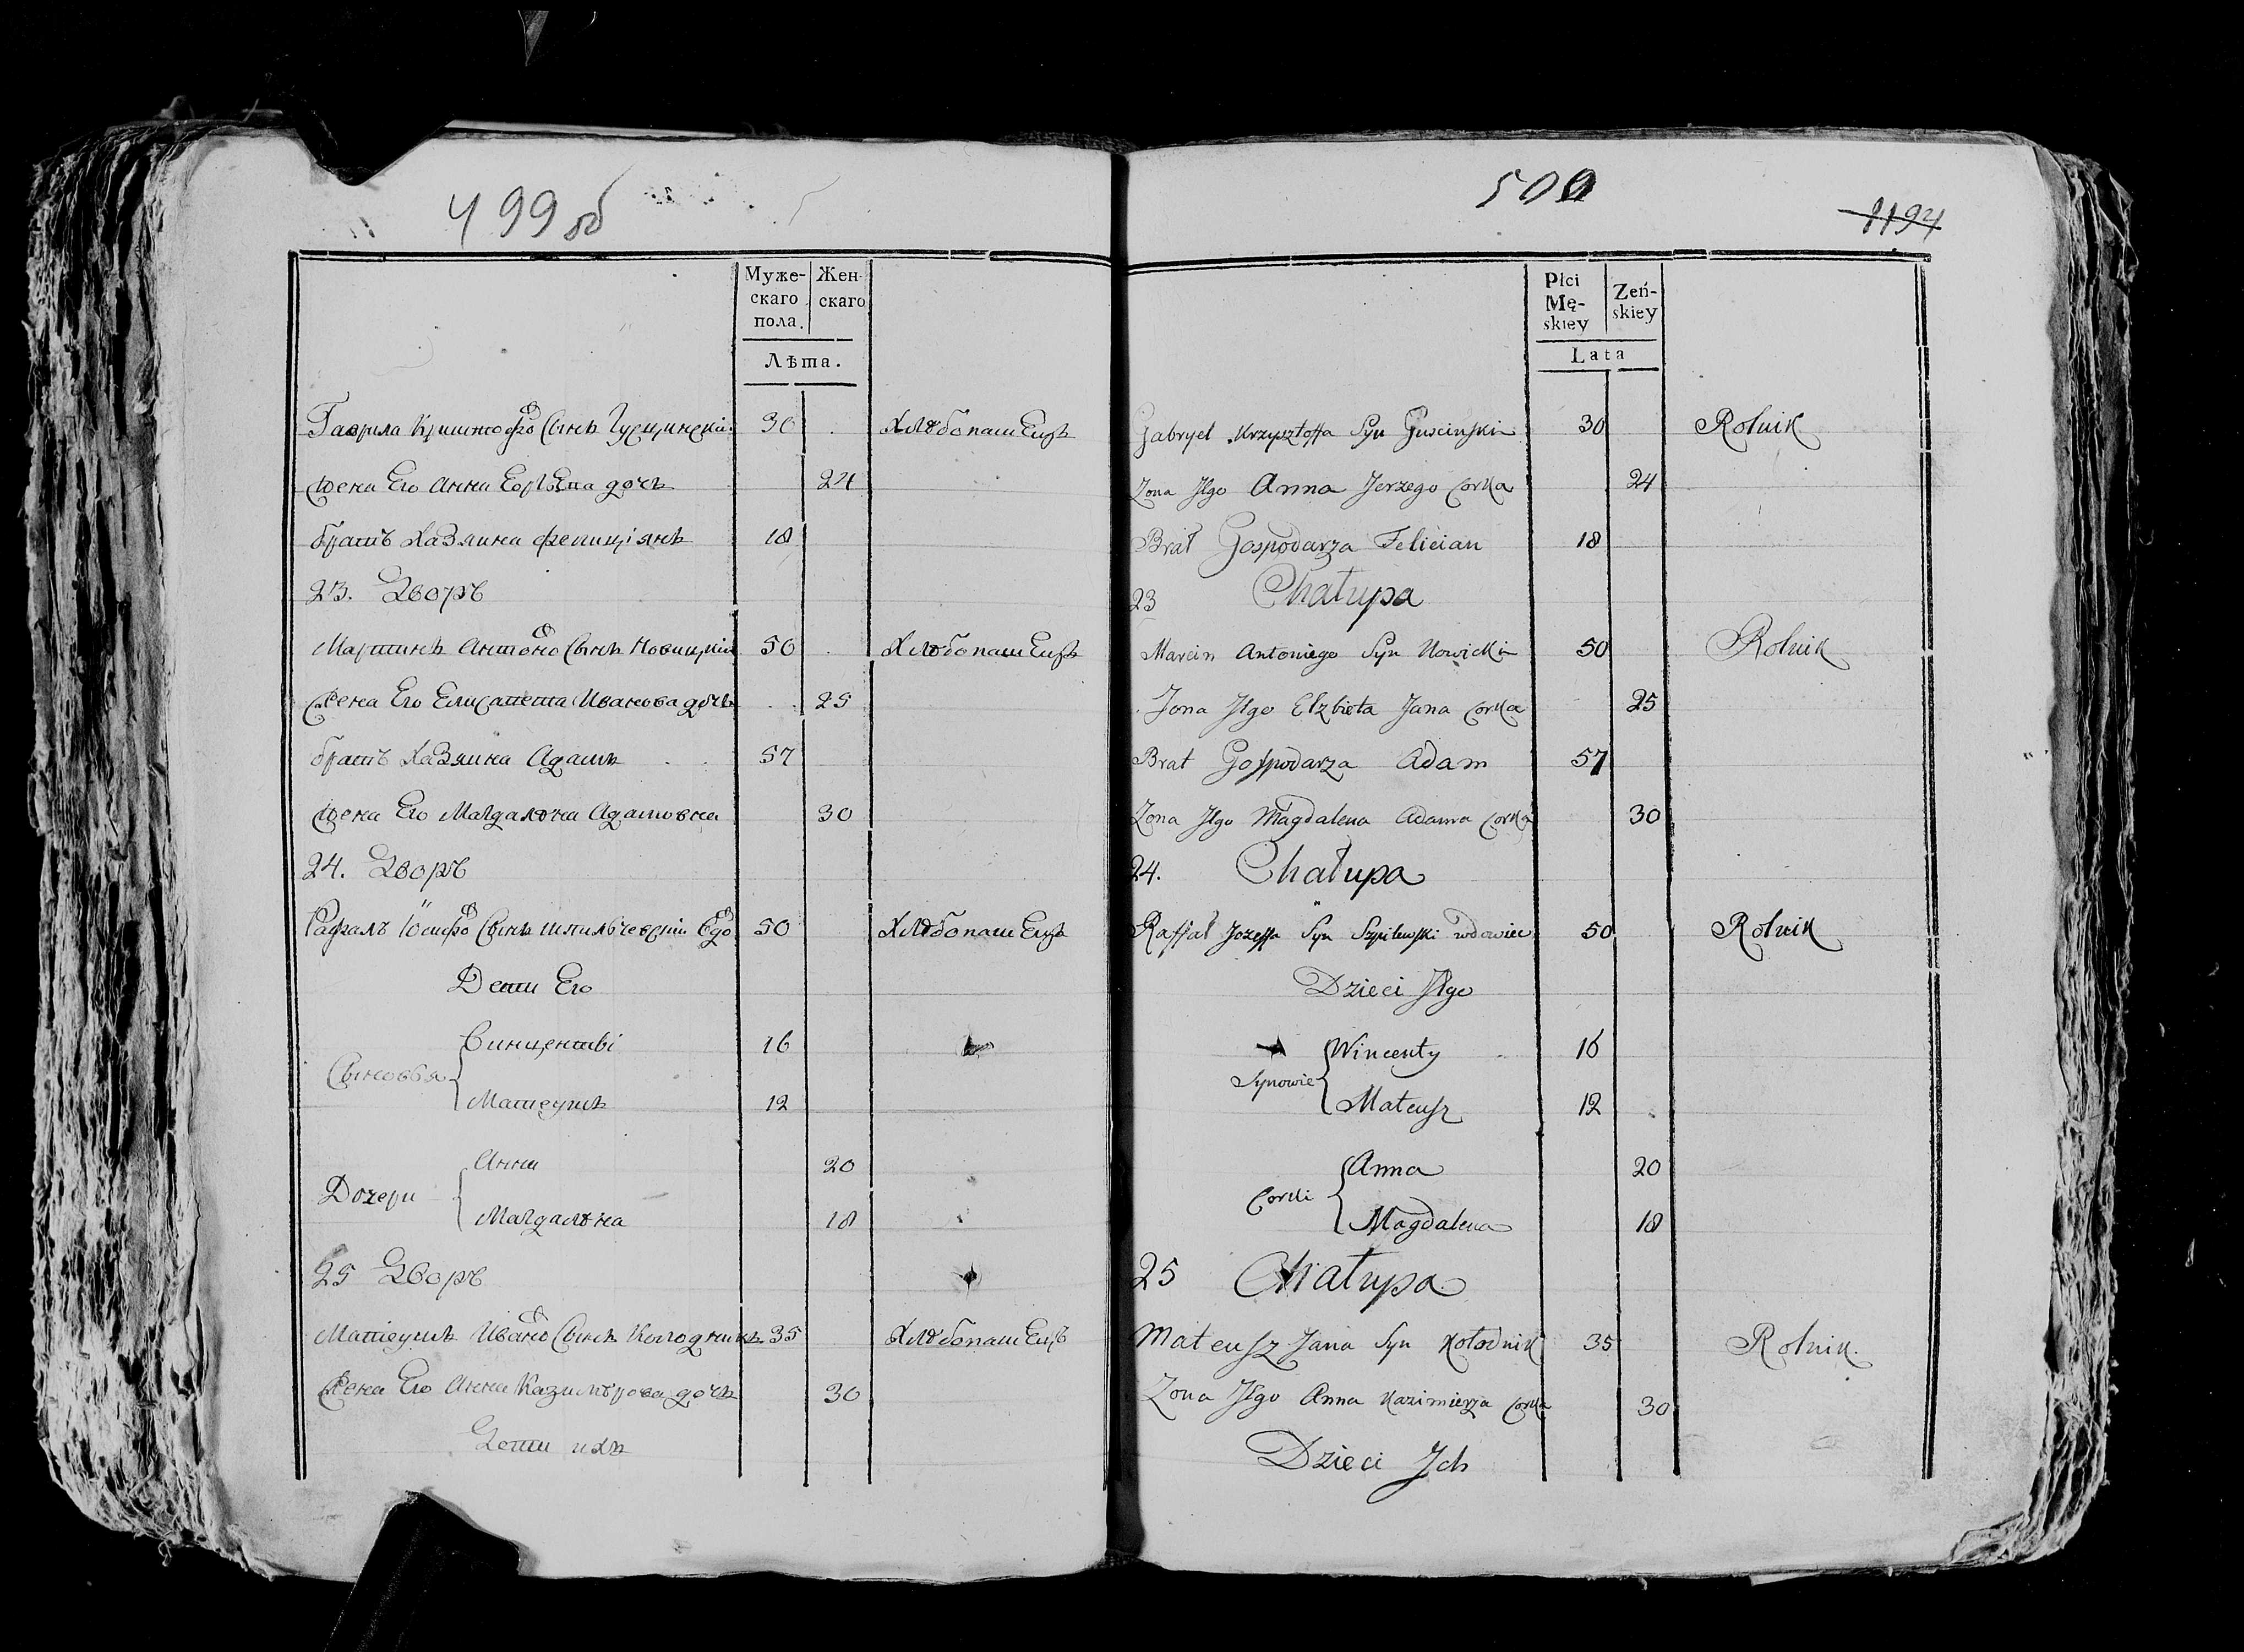 499 об
Муже-
скаго
пола.
Жен-
скаго
Лѣта.
Гаврила Криштофо Сынъ Гусцинскій 30 Хлѣбопашецъ
Жена Его Анна Еорьева дочь 24
братъ Хазяина Фелиціянъ 18
23. Дворъ
Мартинъ Антоно Сынъ Новицкій 50 Хлѣбопашецъ
Жена Его Елисапета Иванова дочь 25
братъ Хазяина Адамъ 57
Жена Его Магдалѣна Адамовна 30
24. Дворъ
Рафалъ Іосифо Сынъ Шпилѣвскій вдо 50 Хлѣбопашецъ
Дети Его
Винцентві 16
Сыновья
Матеушъ 12
Анна 20
Дочери
Магдалѣна 18
25 Дворъ
Матеушъ Ивано Сынъ Колодникъ 35 Хлѣбопашецъ
Жена Его Анна Казимѣрова дочь 30
Дети ихъ
500
1194
Płci
Mę-
skiey
Zeń-
skiey
Lata
Gabryel Krzysztoffa Syn Guscinski 30 Rolnik
Zona Jego Anna Jerzego Corka 24
Brat Gospodarza Felician 18
23 Chałupa
Marcin Antoniego Syn Nowicki 50 Rolnik
Zona Jego Elzbieta Jana Corka 25
Brat Gospodarza Adam 57
Zona Jego Magdalena Adama Corka 30
24. Chałupa
Raffał Jozeffa Syn Szpilewski wdowiec 50 Rolnik
Dzieci Jego
Wincenty 16
Synowie
Mateusz 12
Anna 20
Corki
Magdalena 18
25 Chałupa
Mateusz Jana Syn Kołodnik 35 Rolnik.
Zona Jego Anna Kazimierza Corka 30
Dzieci Jch